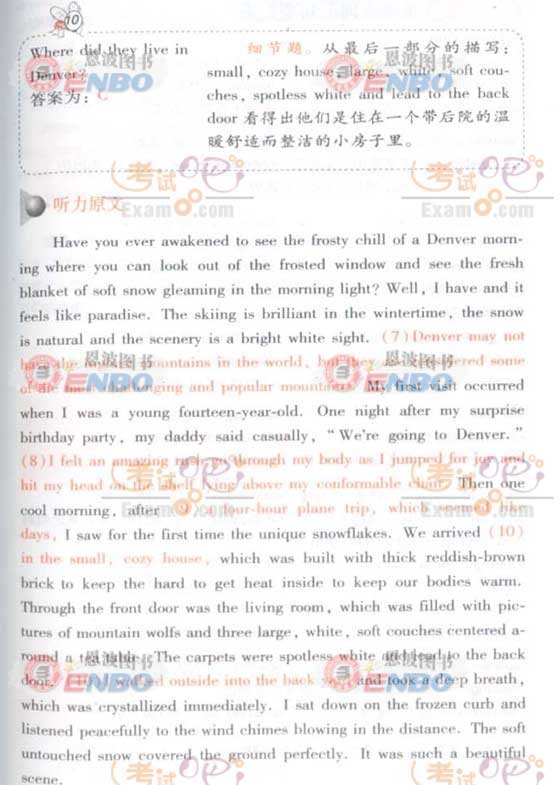 10
Where did they live in
Denver?
答案为：C
细节题。从最后一部分的描写：
small, cozy house, large, white, soft cou-
ches, spotless white and lead to the back
door 看得出他们是住在一个带后院的温
暖舒适而整洁的小房子里。
听力原文
Have you ever awakened to see the frosty chill of a Denver morn-
ing where you can look out of the frosted window and see the fresh
blanket of soft snow gleaming in the morning light? Well, I have and it
feels like paradise. The skiing is brilliant in the wintertime, the snow
is natural and the scenery is a bright white sight. (7) Denver may not
mountains in the world, but they some
of the most challenging and popular mountains. My first visit occurred
when I was a young fourteen-year-old. One night after my surprise
birthday party, my daddy said casually, "We're going to Denver."
(8) I felt an amazing rush go through my body as I jumped for joy and
hit my head on the shelf above my conformable chair. Then one
cool morning, after a four-hour plane trip, which seemed like
days, I saw for the first time the unique snowflakes. We arrived (10)
in the small, cozy house, which was built with thick reddish-brown
brick to keep the hard to get heat inside to keep our bodies warm.
Through the front door was the living room, which was filled with pic-
tures of mountain wolfs and three large, white, soft couches centered a-
round a table. The carpets were spotless white and lead to the back
door. I walked outside into the back and took a deep breath,
which was crystallized immediately. I sat down on the frozen curb and
listened peacefully to the wind chimes blowing in the distance. The soft
untouched snow covered the ground perfectly. It was such a beautiful
scene.
恩波图书
ENBO
考试
Exam8.com